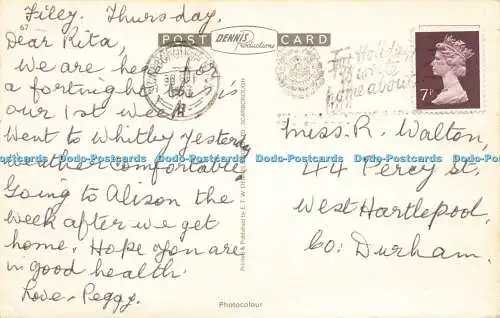 Filey. Thursday.
67
POST DENNIS Productions CARD
Dear Rita,
We are here for
a fortnight this is
our 1st week
Went to Whitley yesterday
weather comfortable
Going to Alison the
week after we get
home. Hope you are
in good health.
Love - Peggy.
SCARBOROUGH
Holiday
home about
7P
Miss. R. Walton,
44 Percy St.
West Hartlepool,
Co: Durham.
Printed & Published by E. T. W. DENNIS SCARBOROUGH
Photocolour
Dodo-Postcards Dodo-Postcards Dodo-Postcards Dodo-Postcards Dodo-Postcards